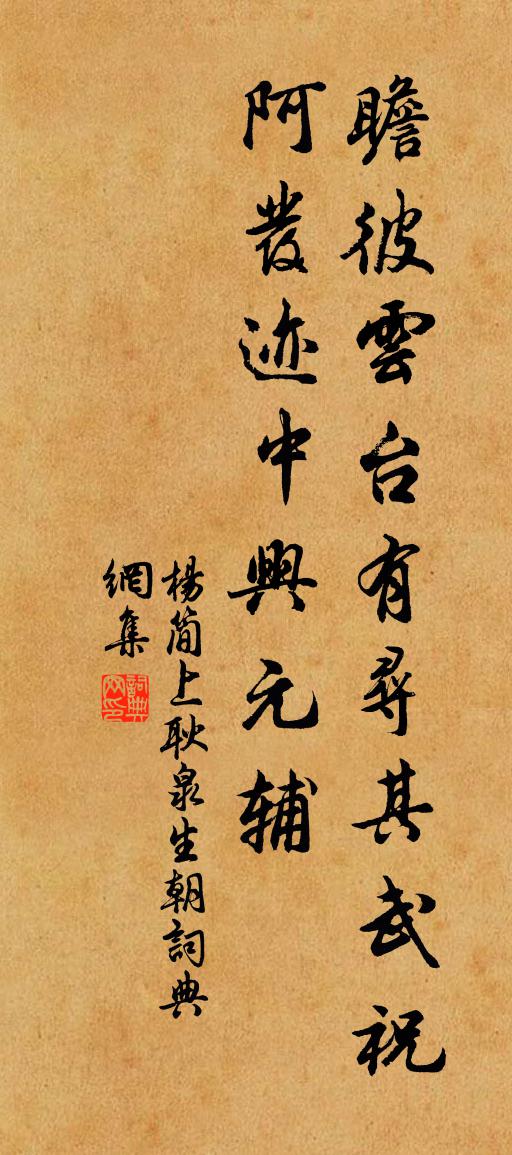 瞻彼雲台有尋其武祝
阿發迹中興元辅
楊简上耿泉生朝詞典
網集
詞典
网印